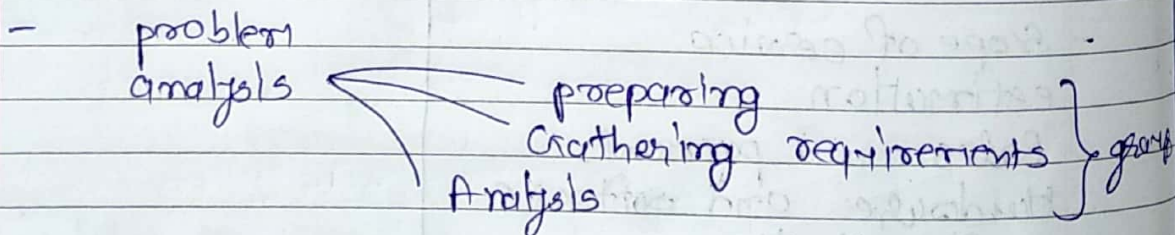 - problem
analysis
preparing
Gathering requirements
Analysis